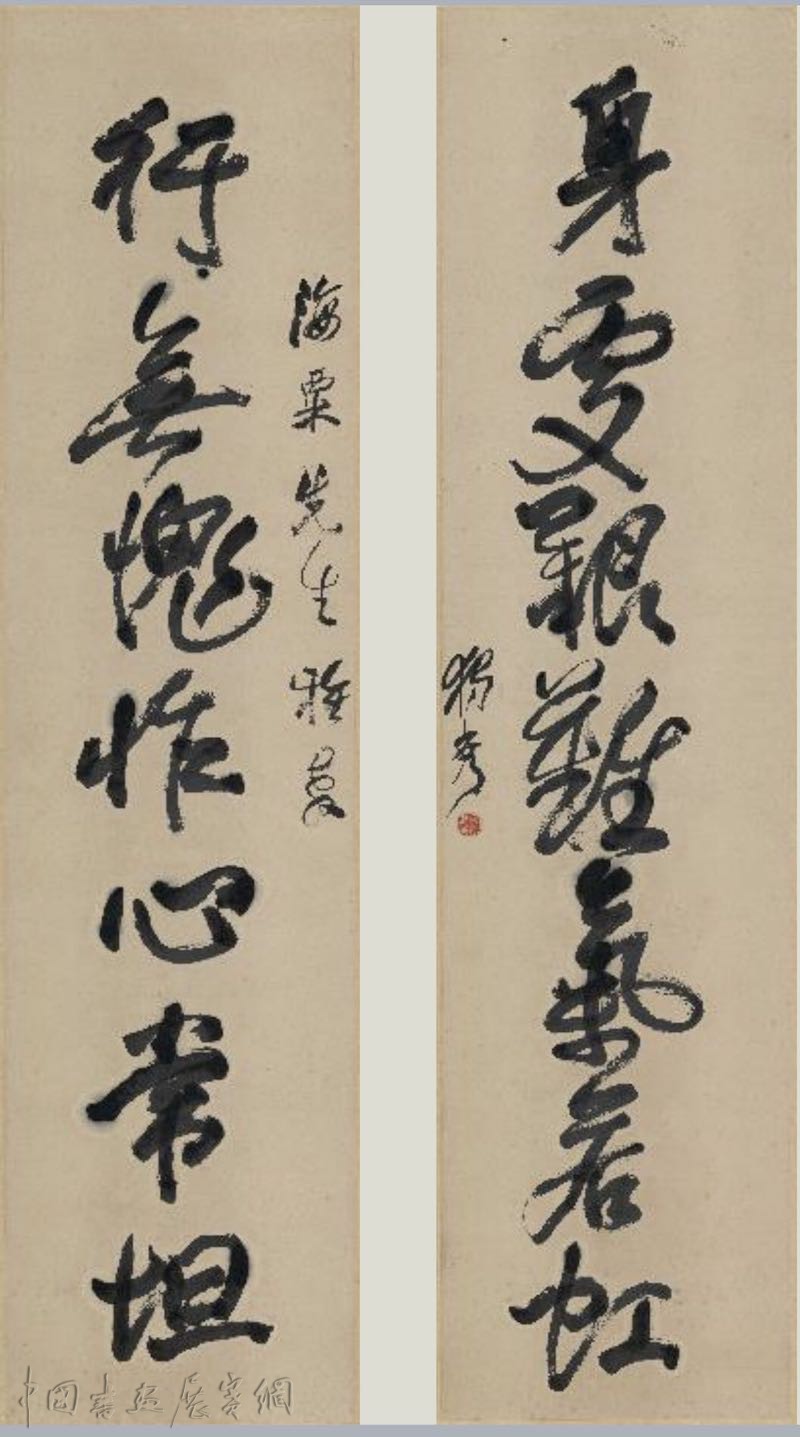 身處艱難氣若虹
獨秀
海粟先生雅
行無愧怍心常坦
中國書展賽網